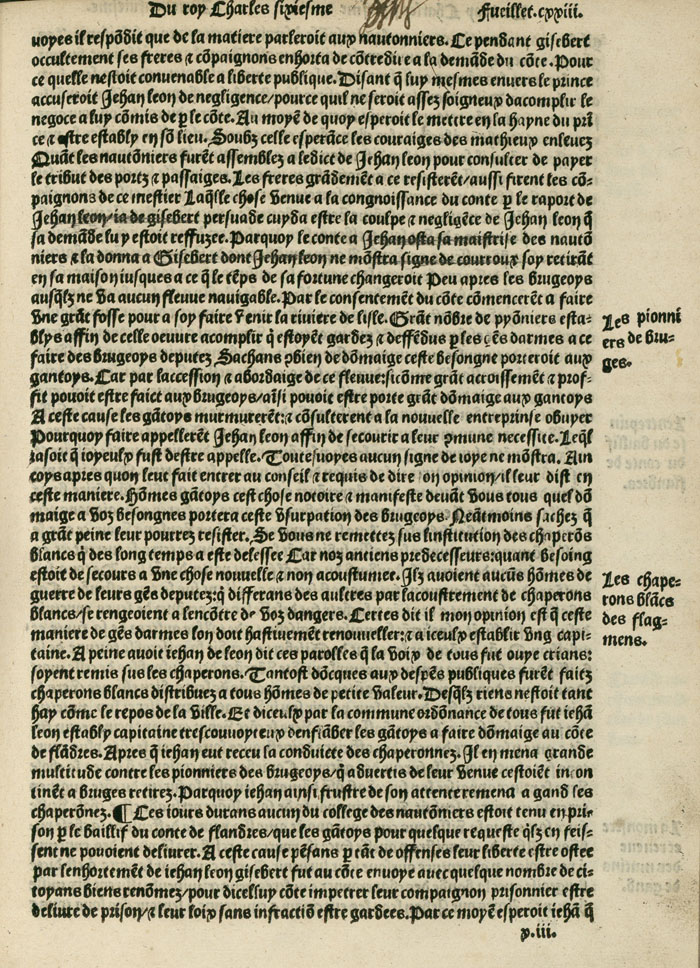 Du roy Charles sixiesme
Fueillet.cxxiii.
uoyes il respõdit que de la matiere parleroit aux nautonniers. Ce pendant gisebert
occultement ses freres & cõpaignons enhorta de cõtredire a la demãde du cõte. Pour
ce quelle nestoit conuenable a liberte publique. Disant q̃ luy mesmes enuers le prince
accuseroit Jehan leon de negligence/pource quil ne seroit assez soigneux dacomplir le
negoce a luy cõmis de p le cõte. Au moyẽ de quoy esperoit le mettre en la hayne du prĩ
ce & estre estably en sõ lieu. Soubz celle esperãce les couraiges des mathieux enleuez
Quãt les nautõniers furẽt assemblez a ledict de Jehan leon pour consulter de payer
le tribut des portz & passaiges. Les freres grãdemẽt a ce resisterẽt/aussi firent les cõ-
paignons de ce mestier Laq̃lle chose venue a la congnoissance du conte p le raport de
Jehan leon/ia de gisebert persuade cuyda estre la coulpe & negligẽce de Jehan leon q̃
sa demãde luy estoit reffuzee. Parquoy le conte a Jehan osta sa maistrise des nautõ
niers & la donna a Gisebert dont Jehan leon ne mõstra signe de courroux soy retirãt
en sa maison iusques a ce q̃ le tẽps de sa fortune changeroit Peu apres les brugeoys
ausq̃lz ne va aucun fleuue nauigable. Par le consentemẽt du cõte cõmencerẽt a faire
vne grãt fosse pour a soy faire venir la riuiere de lisle. Grãt nõbre de pyõniers esta-
blys affin de celle oeuure acomplir q̃ estoyẽt gardez & deffẽdus p les gẽs darmes a ce
faire des brugeoys deputez Sachans ꝯbien de dõmaige ceste besongne porteroit aux
gantoys. Car par laccession & abordaige de ce fleuue:sicõme grãt acroissemẽt & prof-
fit pouoit estre faict aux brugeoys/aĩsi pouoit estre porte grãt dõmaige aux gantoys
A ceste cause les gãtoys murmurerẽt:& cõsulterent a la nouuelle entreprinse obuyer
Pourquoy faire appellerẽt Jehan leon affin de secourir a leur ꝯmune necessite. Leq̃l
iasoit q̃ ioyeulx fust destre appelle. Toutesuoyes aucun signe de ioye ne mõstra. Ain
coys apres quon leut fait entrer au conseil & requis de dire son opinion/il leur dist en
ceste maniere. Hõmes gãtoys cest chose notoire & manifeste deuãt vous tous quel dõ
maige a voz besongnes portera ceste vsurpation des brugeoys. Neãtmoins sachez q̃
a grãt peine leur pourrez resister. Se vous ne remettez sus linstitution des chaperõs
blancs q̃ des long temps a este delessee Car noz antiens predecesseurs:quant besoing
estoit de secours a vne chose nouuelle & non acoustumee. Ilz auoient aucũs hõmes de
guerre de leurs gẽs deputez:q̃ differans des aultres par lacoustrement de chaperons
blancs/se rengeoient a lencõtre de voz dangers. Certes dit il mon opinion est q̃ ceste
maniere de gẽs darmes lon doit hastiuemẽt renouueller:& a iceulx establir vng capi-
taine. A peine auoit iehan de leon dit ces parolles q̃ la voix de tous fut ouye crians:
soyent remis sus les chaperons. Tantost dõcques aux despẽs publiques furẽt faitz
chaperons blancs distribuez a tous hõmes de petite valeur. Desq̃lz riens nestoit tant
hay cõme le repos de la ville. Et diceulx par la commune ordõnance de tous fut iehã
leon estably capitaine trescouuoyteux denflãber les gãtoys a faire dõmaige au cõte
de flãdres. Apres q̃ iehan eut receu la conduicte des chaperonnez. Il en mena grande
multitude contre les pionniers des brugeoys/q̃ aduertis de leur venue cestoiẽt incon
tinẽt a bruges retirez. Parquoy iehan ainsi frustre de son attente remena a gand ses
chaperõnez. ¶ Ces iours durans aucun du college des nautõniers estoit tenu en pri-
son p le baillif du conte de flandres/que les gãtoys pour quelque requeste q̃lz en feis-
sent ne pouoient deliurer. A ceste cause pẽsans p tãt de offenses leur liberte estre ostee
par lenhortemẽt de iehan leon gisebert fut au cõte enuoye auec quelque nombre de ci-
toyans biens renõmez/pour dicelluy cõte impetrer leur compaignon prisonnier estre
deliure de prison/& leur loix sans infractiõ estre gardees. Par ce moyẽ esperoit iehã q̃
x.iii.
Les pionni
ers de bru-
ges.
Les chape-
rons blãcs
des flag-
mens.